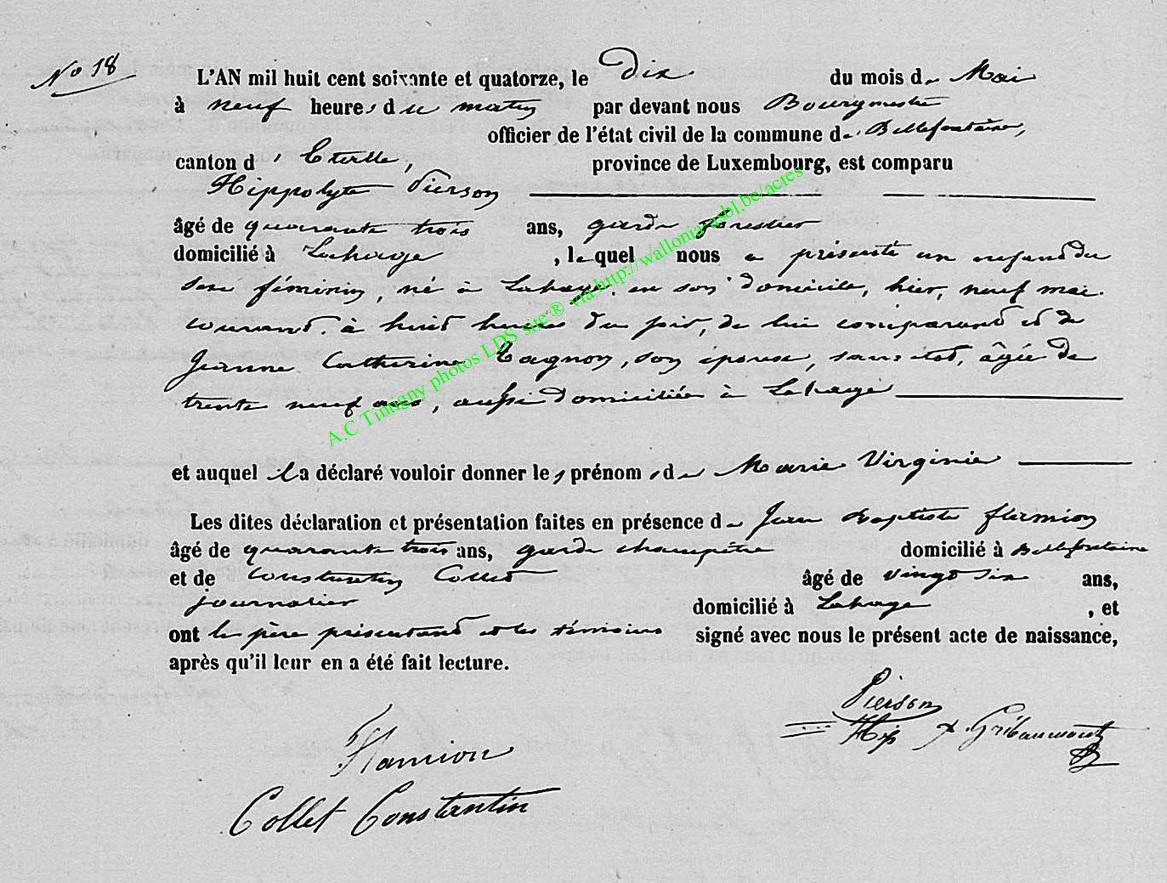 No 18
L'AN mil huit cent soixante et quatorze, le dix du mois de Mai
à neuf heures du matin par devant nous Bourgmestre
officier de l'état civil de la commune de Bellefontaine,
canton d'Etalle, province de Luxembourg, est comparu
Hippolyte Pierson
âgé de quarante trois ans, garde forestier
domicilié à Lahage, lequel nous a présenté un enfant du
sexe féminin, né à Lahage, en son domicile, hier, neuf mai
courant, à huit heures du soir, de lui comparant et de
Jeanne Catherine Tagnon, son épouse, sans état, âgée de
trente neuf ans, aussi domiciliée à Lahage
et auquel il a déclaré vouloir donner les prénoms de Marie Virginie
Les dites déclaration et présentation faites en présence de Jean Baptiste Flamion
âgé de quarante trois ans, garde champêtre domicilié à Bellefontaine
et de Constantin Collet âgé de vingt six ans,
journalier domicilié à Lahage, et
ont le père présentant et les témoins signé avec nous le présent acte de naissance,
après qu'il leur en a été fait lecture.
Pierson
Hip Gribaumont
Flamion
Collet Constantin
A.C Tintigny photos LDS site® via http://wallonia-asbl.be/actes